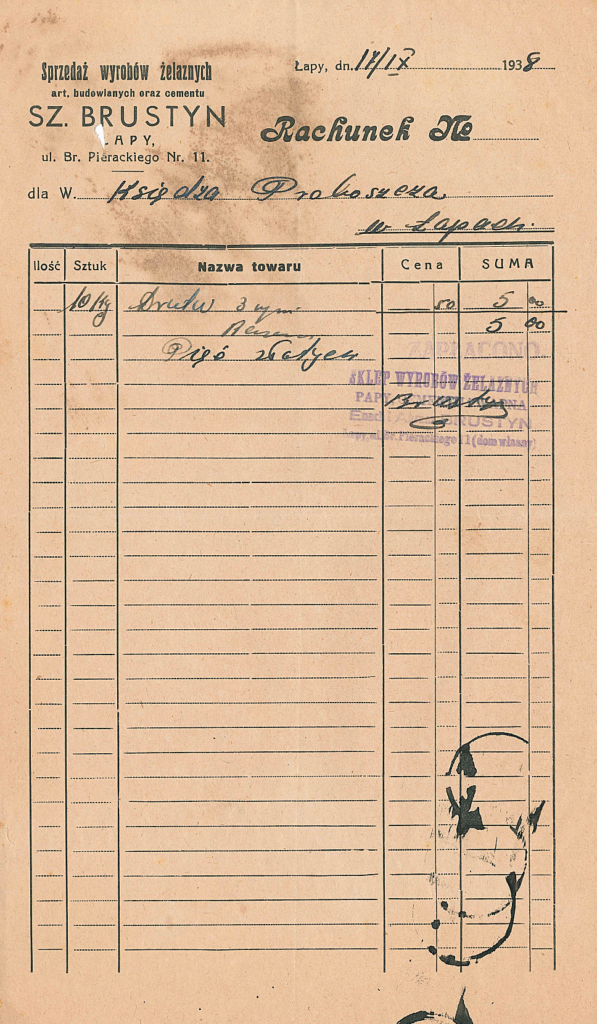 Sprzedaż wyrobów żelaznych
art. budowlanych oraz cementu
SZ. BRUSTYN
ŁAPY,
ul. Br. Pierackiego Nr. 11.
Łapy, dn. 17/IX 1938
Rachunek №
dla W. Księdza Proboszcza
w Łapach
Ilość Sztuk Nazwa towaru Cena SUMA
10 Kg Drutu 3 50 5 00
5 00
Pięć złotych
ZAPŁACONO
SKLEP WYROBÓW ŻELAZNYCH
PAPY
BRUSTYN
Łapy, ul. Br. Pierackiego 11 (dom własny)
Brustyn